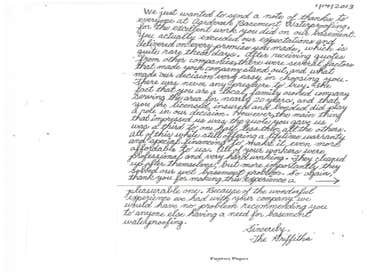 1/14/2013
We just wanted to send a note of thanks to
everyone at Aardvark Basement Waterproofing,
for the excellent work you did on our basement.
You actually exceeded our expectations and
delivered on every promise you made, which is
quite rare these days. After receiving quotes
from other companies, there were several factors
that made your company stand out, and what
made our decision very easy in choosing you.
There was never any pressure to buy, the
fact that you are a local, family owned company
serving the area for nearly 20 years, and that
you are licensed, insured and bonded did play
a role in our decision. However, the main thing
that impressed us was the quote you gave us
was a third to one half less than all the others.
all of this while still offering a lifetime warranty
and special financing to make it even more
affordable to us. All of your workers were
professional and very hard working. They cleaned
up after themselves, but more importantly they
solved our wet basement problem. So again,
thank you for making this experience a
pleasurable one. Because of the wonderful
experience we had with your company we
would have no problem recommending you
to anyone else having a need for basement
waterproofing.
Sincerely,
The Griffiths